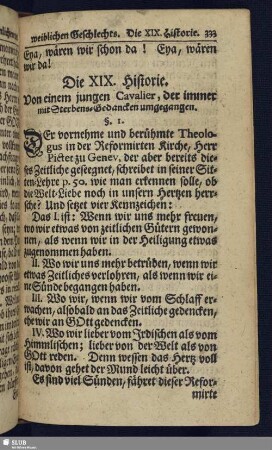 weiblichen Geschlechts. Die XIX. Historie. 333
Eya, wären wir schon da! Eya, wären
wir da!
Die XIX. Historie.
Von einem jungen Cavalier, der immer
mit Sterbens-Gedancken umgegangen.
§. 1.
DEr vornehme und berühmte Theolo-
gus in der Reformirten Kirche, Herr
Pictet zu Genev, der aber bereits die-
ses Zeitliche gesegnet, schreibet in seiner Sit-
ten-Lehre p. 50. wie man erkennen solle, ob
die Welt-Liebe noch in unsern Hertzen herr-
sche? Und setzet vier Kennzeichen:
Das I. ist: Wenn wir uns mehr freuen,
wo wir etwas von zeitlichen Gütern gewon-
nen, als wenn wir in der Heiligung etwas
zugenommen haben.
II. Wo wir uns mehr betrüben, wenn wir
etwas Zeitliches verlohren, als wenn wir ei-
ne Sünde begangen haben.
III. Wo wir, wenn wir vom Schlaff er-
wachen, alsobald an das Zeitliche gedencken,
ehe wir an GOtt gedencken.
IV. Wo wir lieber vom Irdischen als vom
Himmlischen; lieber von der Welt als von
GOtt reden. Denn wessen das Hertz voll
ist, davon gehet der Mund leicht über.
Es sind viel Sünden, fähret dieser Refor-
mirte
SLUB